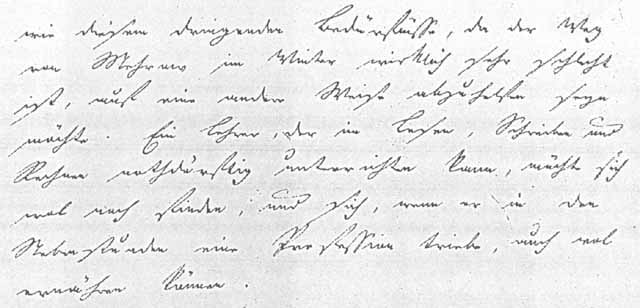 wie diesem dringenden Bedürfnisse, da der Weg
von Mehrow im Winter wirklich sehr schlecht
ist, auf eine andere Weise abzuhelfen seyn
möchte. Ein Lehrer, der im Lesen, Schreiben und
Rechnen nothdürftig unterrichten kann, möchte sich
wol noch finden, und sich, wenn er in den
Nebenstunden eine Profession triebe, auch wol
ernähren können.